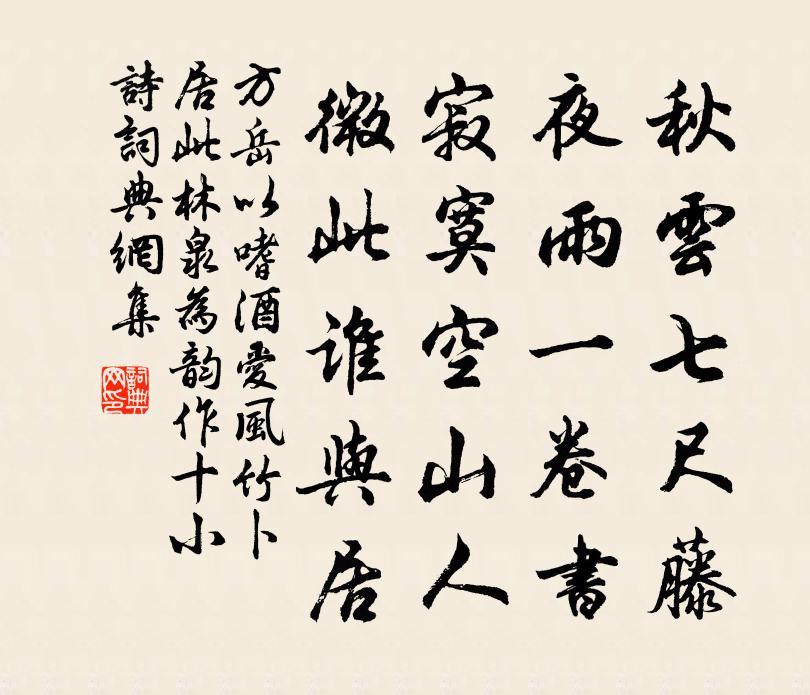 秋雲七尺藤
夜雨一卷書
寂寞空山人
微此誰與居
方岳以嗜酒愛風竹卜
居此林泉為韵作十小
詩詞典網集
詞典
网印